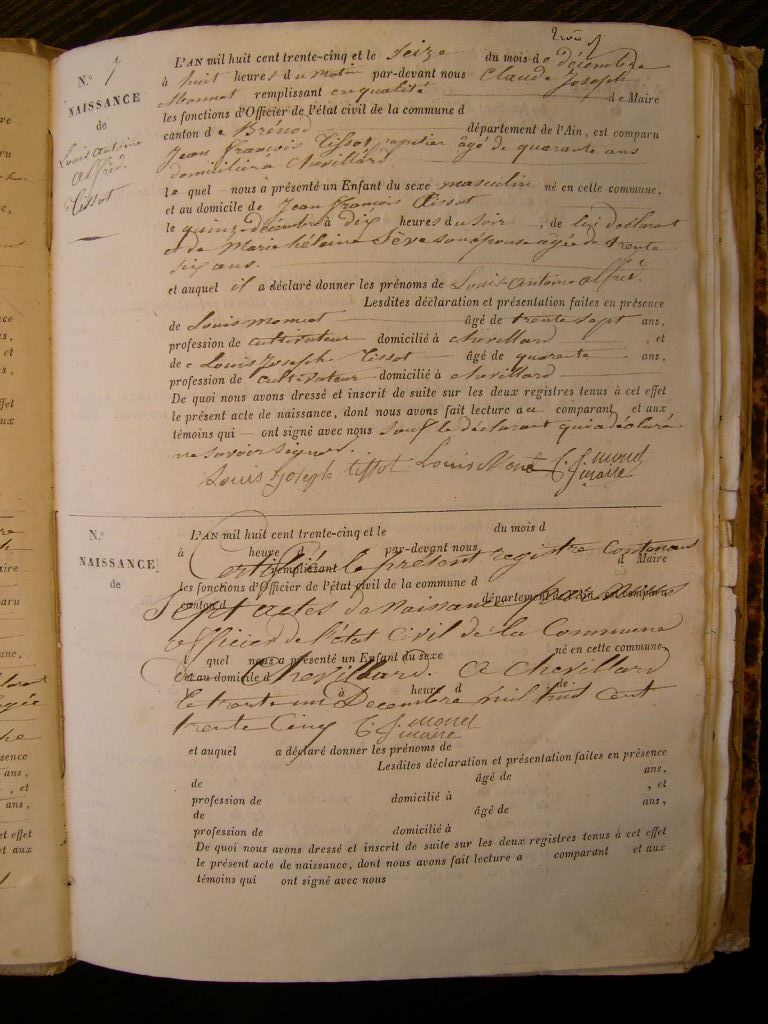 N.° 7
NAISSANCE
de
Louis antoine
alfred
Tissot
L'AN mil huit cent trente-cinq et le seize du mois de décembre
à huit heures du matin par-devant nous Claude Joseph
Monnet remplissant en qualité de Maire
les fonctions d'Officier de l'état civil de la commune d
canton de Brénod département de l'Ain, est comparu
Jean François Tissot papetier âgé de quarante ans
domicilié à chevillard
le quel nous a présenté un Enfant du sexe masculin né en cette commune,
et au domicile de Jean françois Tissot
le quinze décembre à dix heures du soir, de lui déclarant
et de Marie héleine Sève son épouse âgée de trente
six ans.
et auquel il a déclaré donner les prénoms de Louis antoine alfred.
Lesdites déclaration et présentation faites en présence
de Louis monnet âgé de trente sept ans,
profession de cultivateur domicilié à chevillard, et
de Louis Joseph Tissot âgé de quarante ans,
profession de cultivateur domicilié à chevillard
De quoi nous avons dressé et inscrit de suite sur les deux registres tenus à cet effet
le présent acte de naissance, dont nous avons fait lecture au comparant et aux
témoins qui ont signé avec nous sauf le déclarant qui a déclaré
ne savoir signer.
Louis Joseph tissot Louis Monet C. J. monet
maire
N.°
NAISSANCE
de
L'AN mil huit cent trente-cinq et le du mois d
à heure d par-devant nous
Certifié le présent registre contenant
remplissant d Maire
les fonctions d'Officier de l'état civil de la commune d
canton d département de l'Ain, est comparu
Sept actes de Naissance par nous
officier de l'état civil de la Commune
l quel nous a présenté un Enfant du sexe né en cette commune
et au domicile d
Chevillard. a chevillard
le à heure d de
le trente un Decembre mil huit cent
trente Cinq C. J. monet
maire
et auquel a déclaré donner les prénoms de
Lesdites déclaration et présentation faites en présence
de âgé de ans,
profession de domicilié à , et
de âgé de ans,
profession de domicilié à
De quoi nous avons dressé et inscrit de suite sur les deux registres tenus à cet effet
le présent acte de naissance, dont nous avons fait lecture a comparant et aux
témoins qui ont signé avec nous